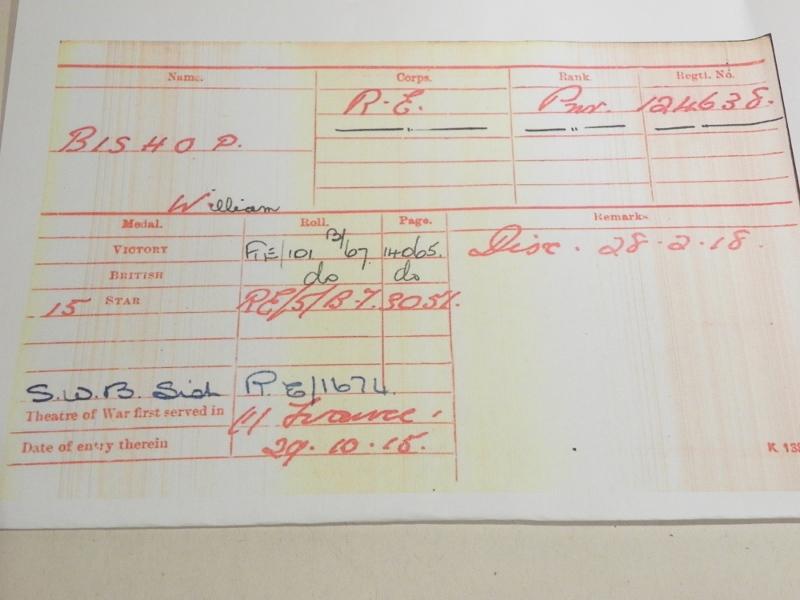 Name. Corps. Rank. Regtl. No.
R.E. Pnr. 124638.
BISHOP.
William
Medal. Roll. Page. Remarks
VICTORY RE/101 B/67. 14065. Disc. 28.2.18.
BRITISH do do
15 STAR RE/5/B.7. 3051.
S.W.B. List RE/1674.
Theatre of War first served in (1) France.
Date of entry therein 29.10.15.
K. 138